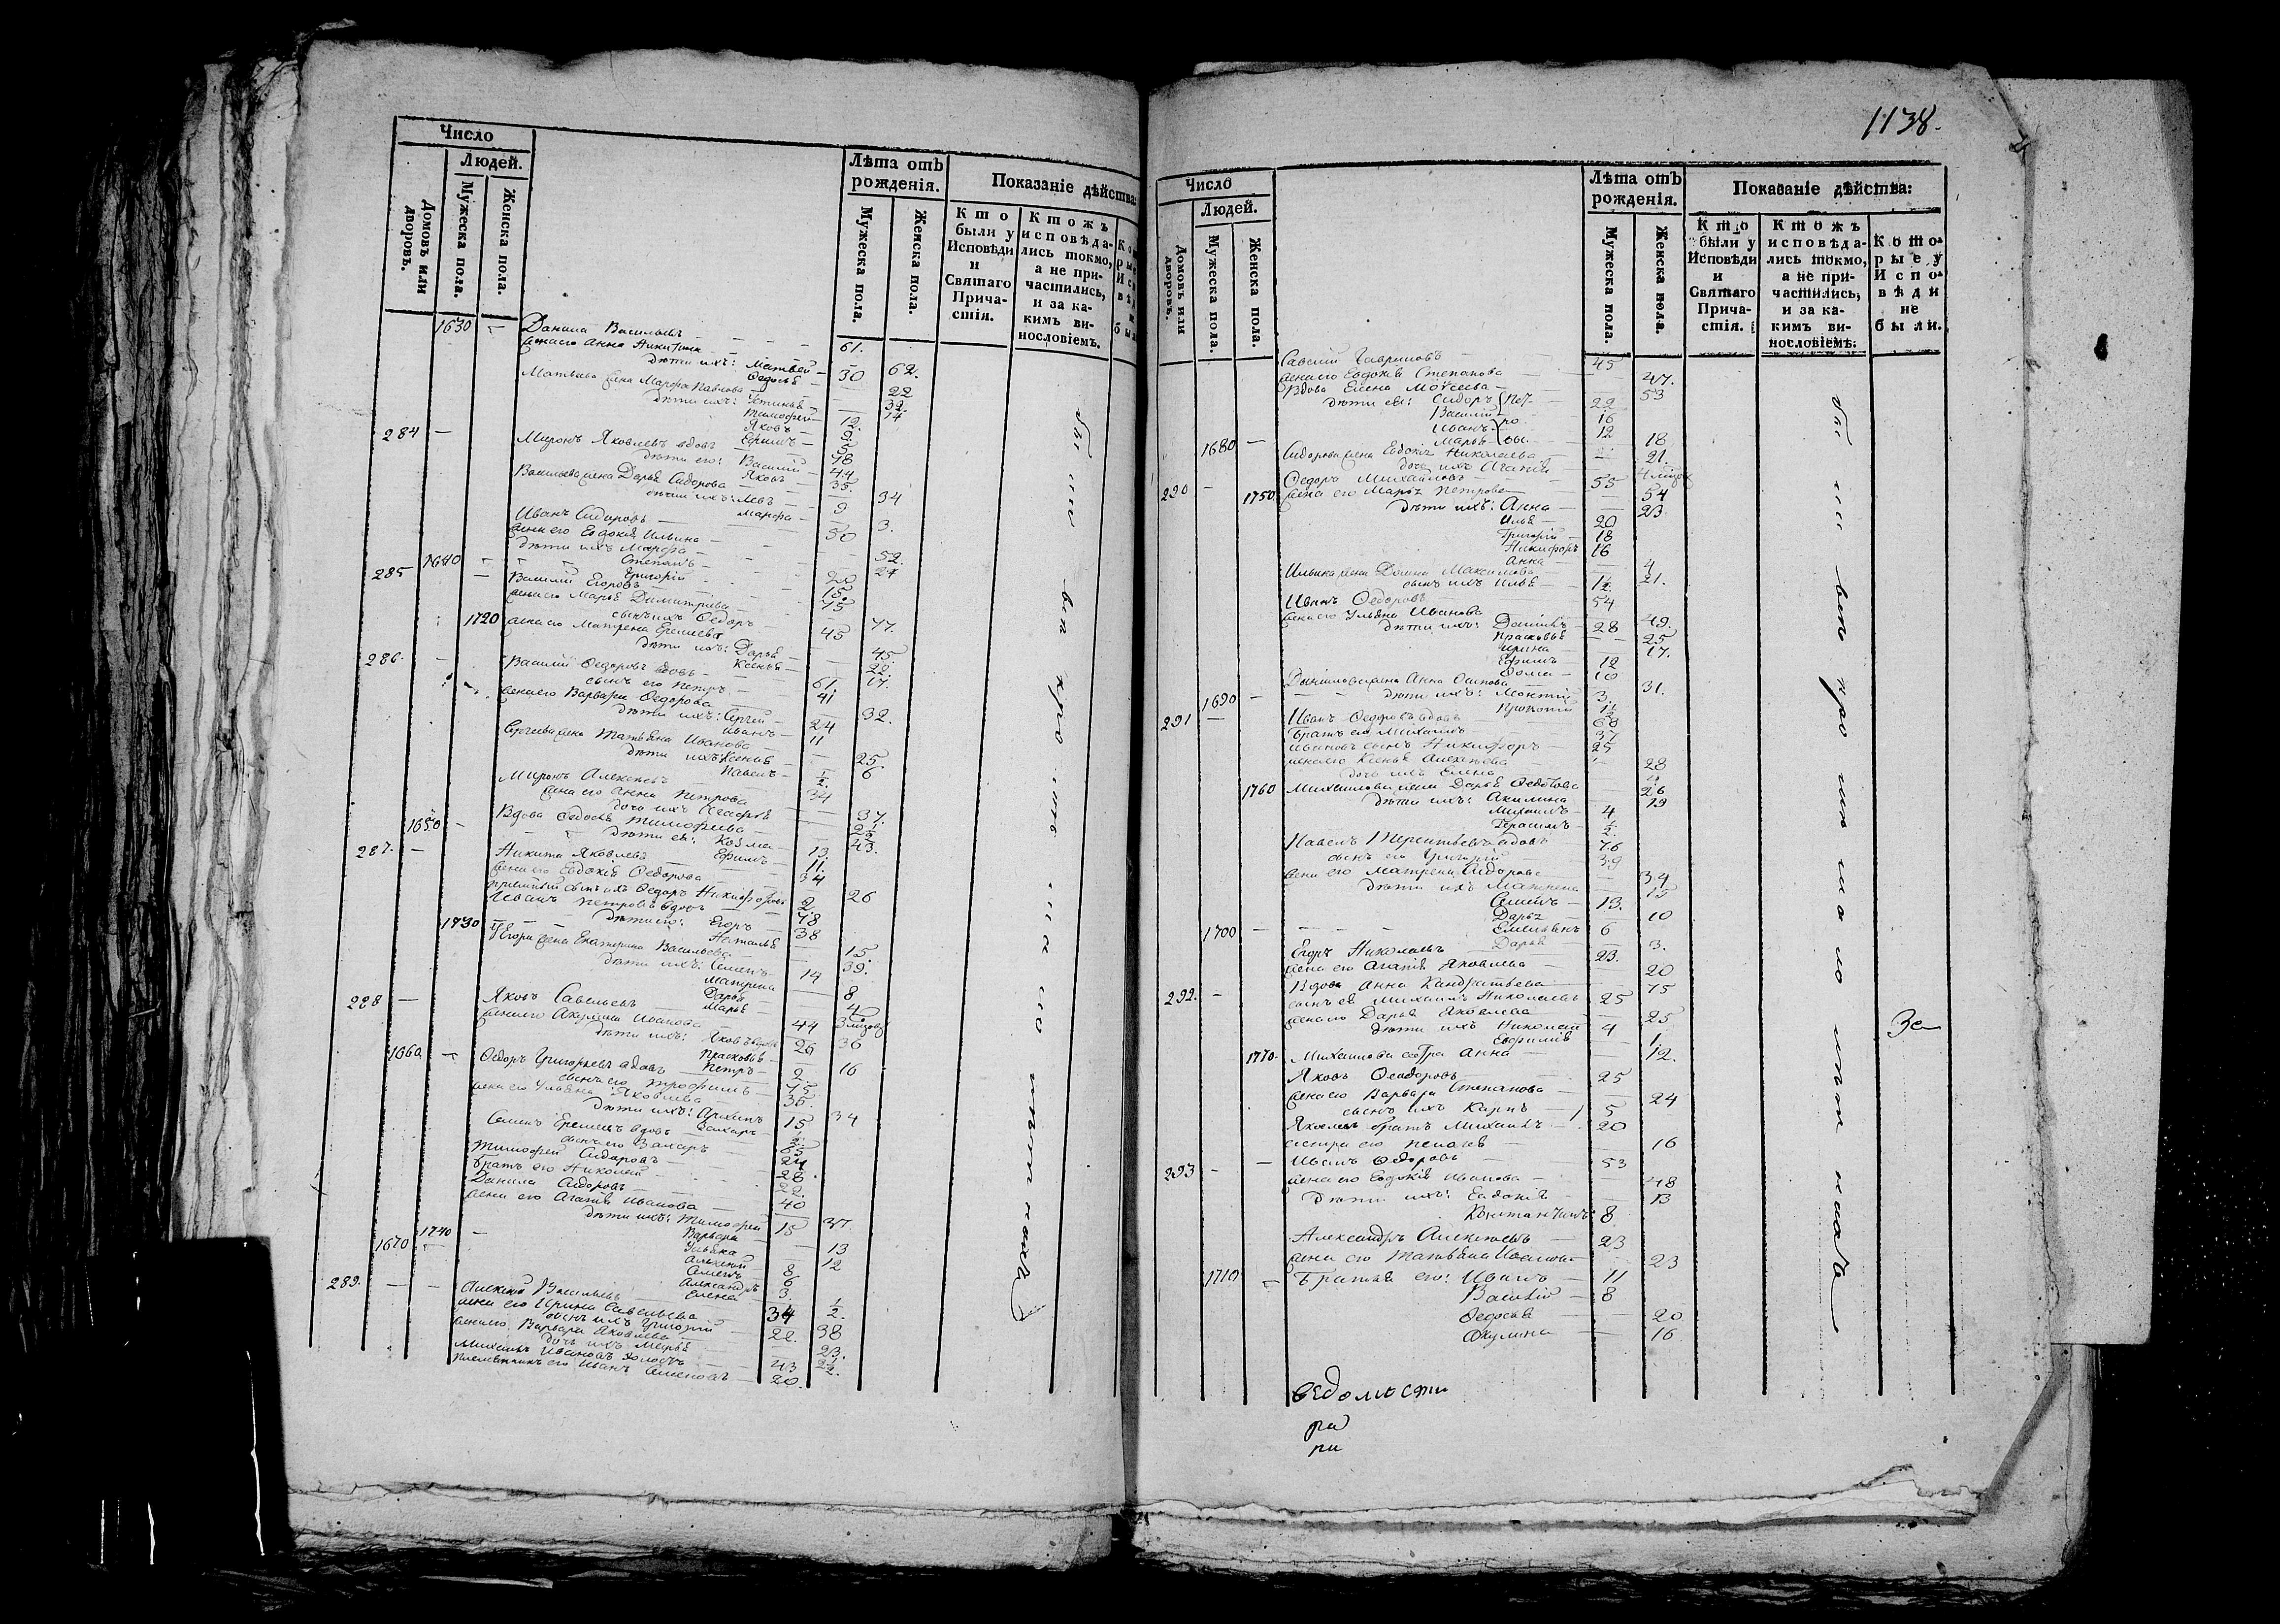 1138.
Число
Людей.
Домовъ или дворовъ.
Мужеска пола.
Женска пола.
Лѣта отъ рожденія.
Мужеска пола.
Женска пола.
Показаніе дѣйства:
Кто были у Исповѣди и Святаго Причастія.
Ктожъ исповѣдались токмо, а не причастились, и за какимъ винословіемъ.
1630 Данила Васильевъ 61.
жена его Анна Никитина 62.
дѣти ихъ: Матвей 30
Федосья 22
Матвева жена Марфа Павлова 32.
дѣти ихъ: Устинья 14
Тимофей 12.
Яковъ 9
Ефимъ
284 Миронъ Яковлевъ вдовъ 78
дѣти его: Василий 44
Яковъ 35.
Васильева жена Дарья Сидорова 34
дѣти ихъ: Левъ 9
Марфа 3.
Иванъ Сидоровъ 50
жена его Евдокія Ильина 52.
дѣти ихъ Марфа 27
1640 Степанъ 20
Григорій 15.
285 Василій Егоровъ 75
жена его Марья Димитріева 77.
сынъ ихъ Федоръ 45
1720 жена его Матрена Еремеева 45
дѣти ихъ: Дарья 20.
Ксенья 17.
286. Василій Федоровъ вдовъ 61.
сынъ его Петръ 41
жена его Варвара Федорова 32.
дѣти ихъ: Сергей 24
Иванъ 11
Сергеева жена Татьяна Иванова 25.
дѣти ихъ Ксенья 6
Павелъ 1/2.
Миронъ Алексеевъ 34
жена его Анна Петрова 37.
дочь ихъ Агафья 2 1/2
Вдова Федосья Тимофеева 43.
1650 дѣти ея: Козма 13.
Ефимъ 11.
287. Никита Яковлевъ 34
жена его Евдокія Федорова 26
приемный сынъ ихъ Федоръ Никифоровъ 2
Иванъ Петровъ вдовъ 78
дѣти его: Егоръ 38
1730 Наталья 15.
Егора жена Екатерина Васильева 39.
дѣти ихъ: Семенъ 14
Матрена 8
Дарья 4
Марья
288 Яковъ Савельевъ 44
жена его Акулина Иванова 36
дѣти ихъ: Яковъ 26
Прасковья 16
1660 Петръ 2.
Федоръ Григорьевъ вдовъ 75
сынъ его Трофимъ 36
жена его Ульяна Яковлева 34
дѣти ихъ: Архипъ 15
Захаръ 1/2.
Семенъ Еремеевъ вдовъ 65
сынъ его Захаръ 24
Тимофей Сидоровъ 28.
братъ его Николай 22.
Данила Сидоровъ 40
жена его Агафія Иванова 37.
дѣти ихъ: Тимофей 15
1740 Варвара 13
Ульяна 12
1670 Алексей 8
Семенъ 6
Александръ 3.
Елена 1/2.
289. Алексей Васильевъ 34
жена его Ирина Савельева 38
сынъ ихъ Григорій 22.
жена его Варвара Яковлева 23.
дочь ихъ Марья 2 1/2.
Михаилъ Ивановъ холостъ 43
племянникъ его Иванъ Семеновъ 20.
Число
Людей.
Домовъ или дворовъ.
Мужеска пола.
Женска пола.
Лѣта отъ рожденія.
Мужеска пола.
Женска пола.
Показаніе дѣйства:
Кто были у Исповѣди и Святаго Причастія.
Ктожъ исповѣдались токмо, а не причастились, и за какимъ винословіемъ:
Которые у Исповѣди не были.
Савелій Гавриловъ 45
жена его Евдокія Степанова 47.
Вдова Елена Моисеева 53
дѣти ея: Сидоръ 22
Василій 16
Иванъ 12
1680 Марья 18
Сидорова жена Евдокія Николаева 21.
дочь ихъ Агафія
290 Федоръ Михайловъ 55
1750 жена его Марья Петрова 54
дѣти ихъ: Анна 23
Илья 20
Григорій 18
Никифоръ 16
Анна 4
Ильина жена Домна Максимова 21.
сынъ ихъ Илья 1 1/2.
Иванъ Федоровъ 54
жена его Ульяна Иванова 49.
дѣти ихъ: Данилъ 28
Прасковья 25
Ирина 17.
Ефимъ 12
Фома 10
Данилова жена Анна Осипова 31.
1690 дѣти ихъ: Моисей 3
Прокопій 1 1/2
291 Иванъ Федоровъ вдовъ 68
братъ его Михаилъ 37
Ивановъ сынъ Никифоръ 25
жена его Ксенья Алексеева 28
дочь ихъ Елена 4
1760 Михаилова жена Дарья Федотова 26
дѣти ихъ: Акилина 19
Михаилъ 4
Герасимъ 1/2.
Павелъ Терентьевъ вдовъ 76
сынъ его Григорій 39
жена его Матрена Сидорова 34
дѣти ихъ Матрена 15
Семенъ 13.
Дарья 10
1700 Емельянъ 6
Дарья 3.
Егоръ Николаевъ 23.
жена его Агафія Яковлева 20
Вдова Анна Кандратьева 75
292. сынъ ея Михаилъ Николаевъ 25
жена его Дарья Яковлева 25
дѣти ихъ Николай 4
Евфимія 1.
1770. Михаилова сестра Анна 12.
Яковъ Феодоровъ 25
жена его Варвара Степанова 24
сынъ ихъ Карпъ 5
Яковлевъ братъ Михаилъ 20
сестра его Пелагея 16
293 Иванъ Федоровъ 53
жена его Евдокія Иванова 48
дѣти ихъ: Евдокія 13
Константинъ 8
Александръ Алексеевъ 23
жена его Татьяна Иванова 23
1710 братья его: Иванъ 11
Василій 8
Федосья 20
Акулина 16
ведомости
ра
ни